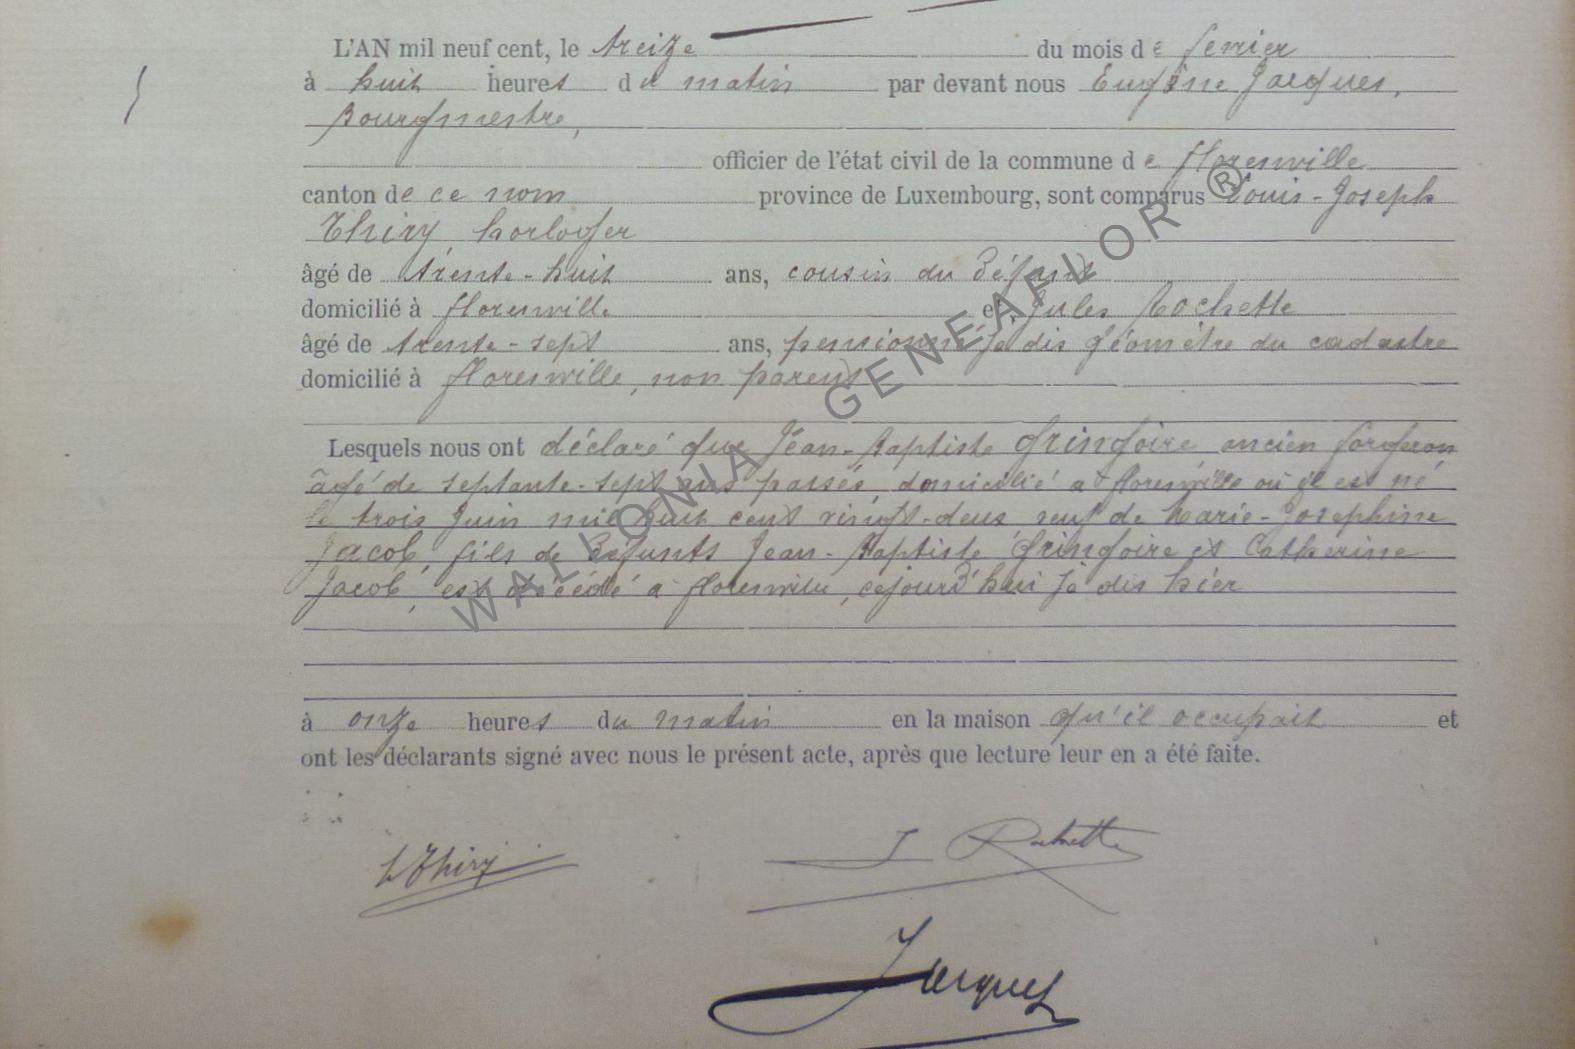 L'AN mil neuf cent, le treize du mois de fevrier
à huit heures du matin par devant nous Eugène Jacques,
Bourgmestre,
officier de l'état civil de la commune de florenville
canton de ce nom province de Luxembourg, sont comparus Louis-Joseph
Thiry, horloger
âgé de trente-huit ans, cousin du défunt
domicilié à florenville et Jules Rochette
âgé de trente-sept ans, pensionné je dis géomètre du cadastre
domicilié à florenville, non parent
Lesquels nous ont déclaré que Jean-Baptiste Gringoire ancien forgeron
âgé de septante-sept ans passés, domicilié à florenville où il est né
le trois Juin mil huit cent vingt-deux, veuf de Marie-Josephine
Jacob, fils de défunts Jean-Baptiste Gringoire et Catherine
Jacob, est décédé à florenville, cejourd'hui je dis hier
à onze heures du matin en la maison qu'il occupait et
ont les déclarants signé avec nous le présent acte, après que lecture leur en a été faite.
L Thiry J Rochette
Jacques
WALLONIA GENEAFLOR ®